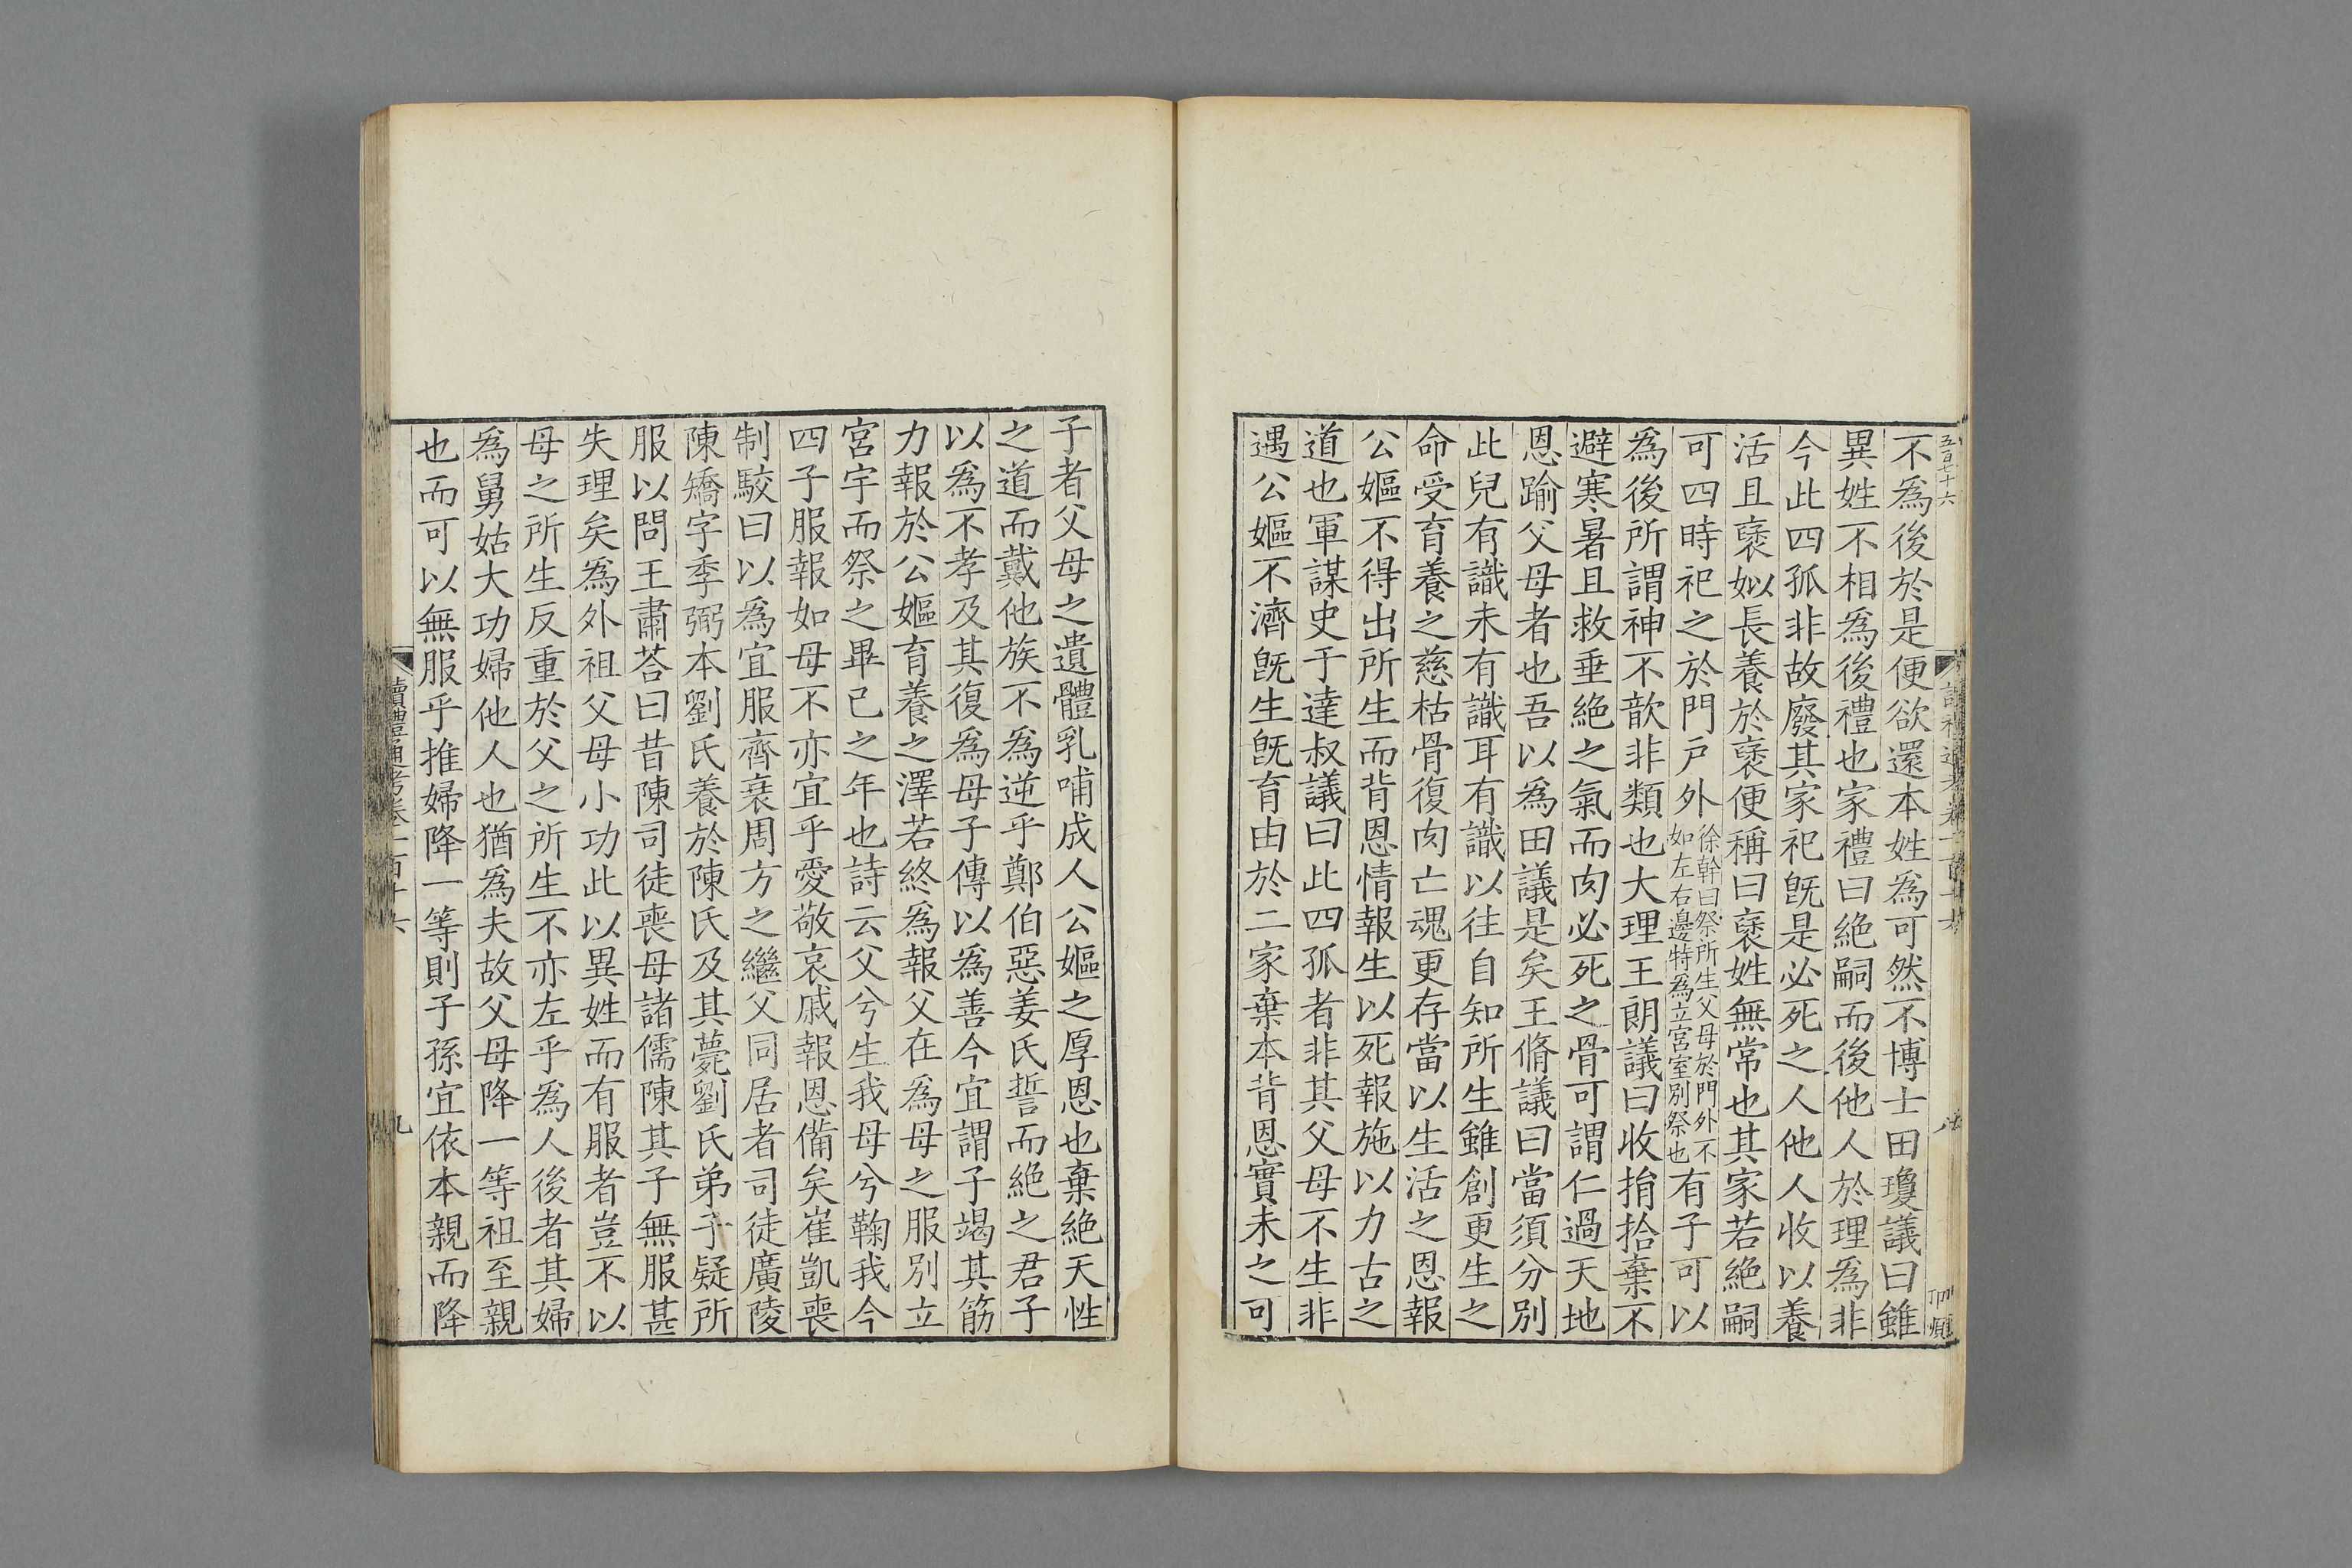 五百七十六
不爲後於是便欲還本姓爲可然不博士田瓊議曰雖
異姓不相爲後禮也家禮曰絶嗣而後他人於理爲非
今此四孤非故廢其家祀旣是必死之人他人收以養
活且襃姒長養於襃便稱曰襃姓無常也其家若絶嗣
可四時祀之於門戸外徐幹曰祭所生父母於門外不如左右邊特爲立宮室別祭也有子可以
爲後所謂神不歆非類也大理王朗議曰收捐拾棄不
避寒暑且救垂絶之氣而肉必死之骨可謂仁過天地
恩踰父母者也吾以爲田議是矣王脩議曰當須分別
此兒有識未有識耳有識以往自知所生雖創更生之
命受育養之慈枯骨復肉亡魂更存當以生活之恩報
公嫗不得出所生而背恩情報生以死報施以力古之
道也軍謀史于達叔議曰此四孤者非其父母不生非
遇公嫗不濟旣生旣育由於二家棄本背恩實未之可
子者父母之遺體乳哺成人公嫗之厚恩也棄絶天性
之道而戴他族不爲逆乎鄭伯惡姜氏誓而絶之君子
以爲不孝及其復爲母子傳以爲善今宜謂子竭其筋
力報於公嫗育養之澤若終爲報父在爲母之服別立
宮宇而祭之畢己之年也詩云父兮生我母兮鞠我今
四子服報如母不亦宜乎愛敬哀戚報恩備矣崔凱喪
制駮曰以爲宜服齊衰周方之繼父同居者司徒廣陵
陳矯字季弼本劉氏養於陳氏及其薨劉氏弟子疑所
服以問王肅荅曰昔陳司徒喪母諸儒陳其子無服甚
失理矣爲外祖父母小功此以異姓而有服者豈不以
母之所生反重於父之所生不亦左乎爲人後者其婦
爲舅姑大功婦他人也猶爲夫故父母降一等祖至親
也而可以無服乎推婦降一等則子孫宜依本親而降
讀禮通考卷一百十六
九